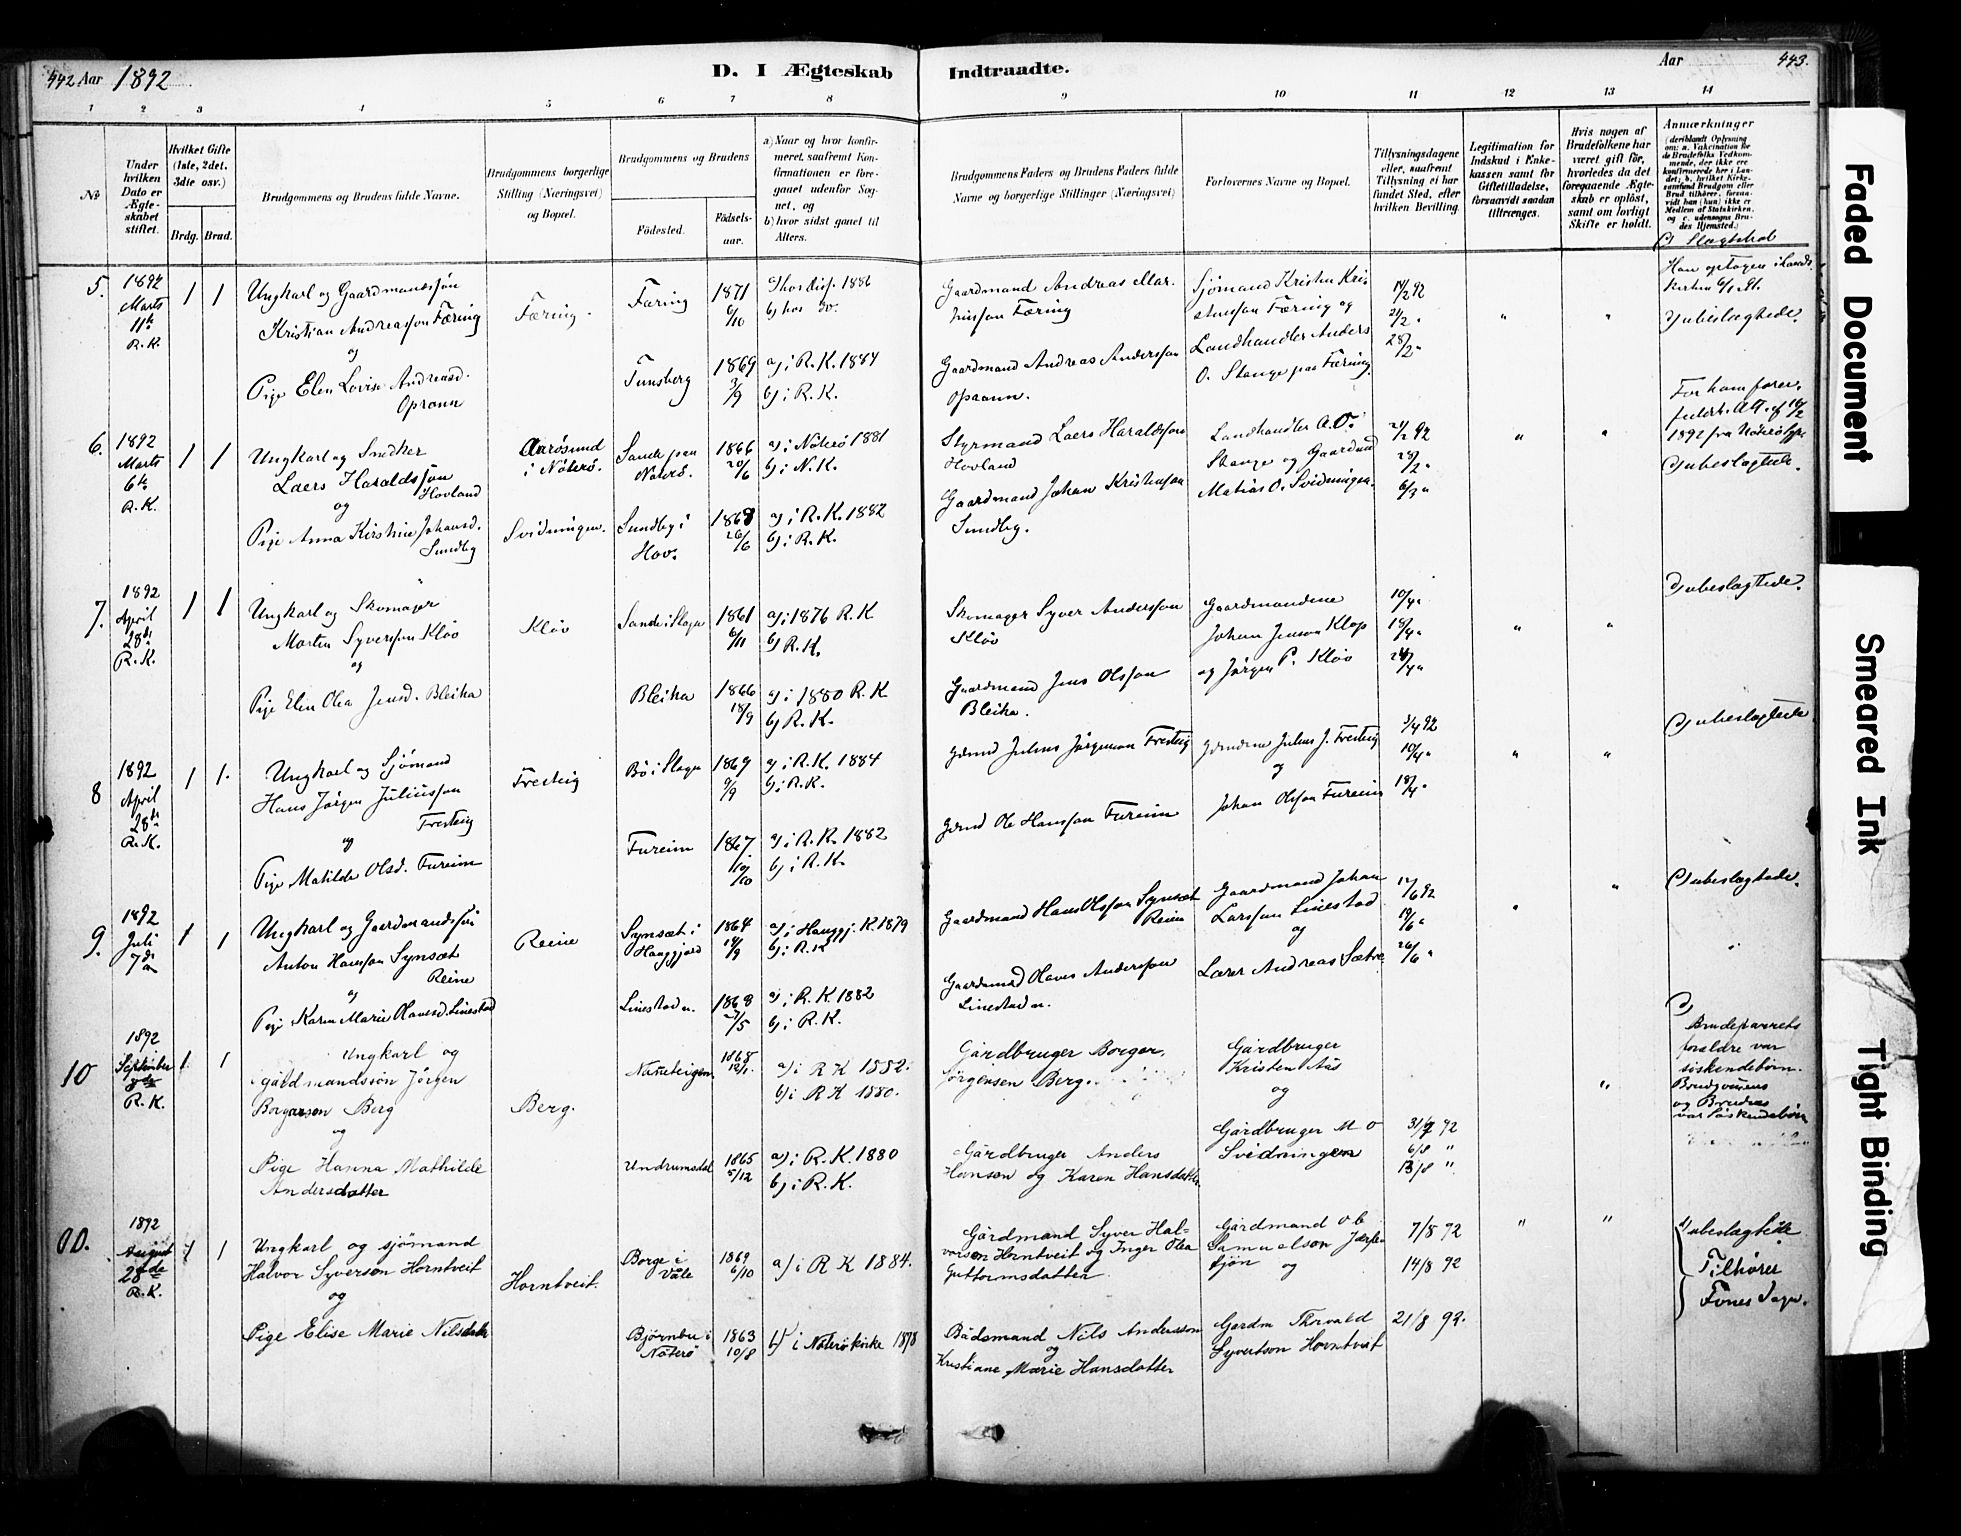 442 Aar 1892
D. I Ægteskab Indtraadte.
Aar 443.
1 2 3 4 5 6 7 8 9 10 11 12 13 14
No
Under hvilken Dato er Ægteskabet stiftet.
Hvilket Gifte (1ste, 2det, 3die osv.)
Brdg. Brud.
Brudgommens og Brudens fulde Navne.
Brudgommens borgerlige Stilling (Næringsvei) og Bopæl.
Brudgommens og Brudens
Fødested.
Fødselsaar.
a) Naar og hvor konfirmeret, saafremt Konfirmationen er foregaaet udenfor Sognet, og
b) hvor sidst gaaet til Alters.
Brudgommens Faders og Brudens Faders fulde Navne og borgerlige Stillinger (Næringsvei)
Forlovernes Navne og Bopæl.
Tillysningsdagene eller, saafremt Tillysning ei har fundet Sted, efter hvilken Bevilling.
Legitimation for Indskud i Enkekassen samt for Giftetilladelse, forsaavidt saadan tiltrænges.
Hvis nogen af Brudefolkene har været gift før, hvorledes da det foregaaende Ægteskab er opløst, samt om lovligt Skifte er holdt.
Anmærkninger
(deriblandt Oplysning om: a. Vakcination for de Brudefolks Vedkommende, der ikke ere konfirmerede her i Landet; b. hvilket Kirkesamfund Brudgom eller Brud tilhører, forsaavidt han (hun) ikke er Medlem af Statskirken, og c. udensogns Brudes Hjemsted.)
c) Slægtskab
5. 1892 Marts 11te R. K.
1 1
Ungkarl og Gaardmandssøn
Kristian Andreassen Færing
og
Pige Elen Lovise Andreasd.
Opraun
Færing.
Færing 1871 6/10
b) hos do.
Tunsberg 1869 3/9
a) i R. K. 1884
b) i R. K.
Gaardmand Andreas
Færing
Gaardmand Andreas Anderssøn
Sjømand Kristen Kristenssøn Færing og
Landhandler Anders
O. Stange paa Færing.
14/2 92
21/2 "
28/2 "
" "
c) ubeslægtede.
6. 1892 Marts 6te R. K.
1 1
Ungkarl og Snedker
Laers Haraldssøn
Hovland
og
Pige Anna Kirstine Johansd.
Sundby
Aarøsund
i Nøterø.
Svidningen.
Sande paa
Nøterø. 1866 20/6
a) i Nøterø 1881
b) i N. K.
Sundby i
Hov. 1868 26/6
a) i R. K. 1882
b) i R. K.
Styrmand Laers Haraldssøn
Hovland
Gaardmand Johan Kristensøn
Sundby.
Landhandler A. O.
Stange og Gaardmd
Matias O. Svidningen.
21/2 92
28/2 "
6/3 "
" "
1892 fra Nøterø
c) ubeslægtede.
7. 1892 April 28de R. K.
1 1
Ungkarl og Skomager
Martin Syverssøn Kløv
og
Pige Elen Olea Jensd. Bleika
Kløv
Sande i Slagn 1861 6/11
a) i 1876 R. K
b) R. K.
Bleika 1866 18/9
a) i 1880 R. K
b) R. K.
Skomager Syver Anderssøn
Kløv
Gaardmand Jens Olssøn
Bleika.
Gaardmændene
Johan Jenssøn Kløp
og Jørgen P. Kløv
10/4 "
18/4 "
24/4 "
" "
c) ubeslægtede.
8 1892 April 28de R. K.
1 1.
Ungkarl og Sjømand
Hans Jørgen Juliussøn
Fresteig
og
Pige Matilde Olsd. Fureim
Fresteig
Bø i Slagn 1869 9/9
a) i R. K. 1884
b) i R. K.
Fureim 1867 19/10
a) i R. K. 1882
b) i R. K.
Gdmd Julius Jørgensøn Fresteig
Gdmd Ole Hanssøn Fureim
Gdmdene Julius J. Fresteig
og
Johan Olssøn Fureim
3/4 92
10/4 "
18/4 "
" "
c) ubeslægtede
9. 1892 Juli 7de
1 1
Ungkarl og Gaardmandssøn
Anton Hanssøn Synsæt
Reine
og
Pige Karen Marie Olavesd. Linestad
Reine
Synsæt i
Haugjord 1864 14/9
a) i Haugj. K. 1879
b) i R. K
Linestad n. 1868 27/5
a) i R. K. 1882
b) i R. K.
Gaardmand Hans Olssøn Synsæt
Reine
Gaardmand Olaves Anderssøn
Linestad n.
Gaardmand Johan
Larssøn Linestad
og
Lærer Andreas Sætre
12/6 92
19/6 "
26/6 "
" "
c) ubeslægtede.
10 1892 September R. K.
1 1
Ungkarl og
gårdmandssøn Jørgen
Borgersen Berg
og
Pige Hanna Mathilde
Andersdatter
Berg.
Nøtteigen 1868 12/1.
a) i R K 1882.
b) i R K 1880.
Undrumsdal 1865 5/12
a) i R. K. 1880
b) i R. K.
Gårdbruger Borger
Jørgensen Berg.
Gårdbruger Anders
Hansen og Karen Hansdatter
Gårdbruger
Kristen Aas
og
Gårdbruger M O
Svidningen
31/7 92
6/8 "
13/8 "
"
c) Brudeparrets
forældre var
søskendebørn.
Brudgommens
og Brudens
var Søskendebørn
1892 August 28de R. K.
1 1
Ungkarl og sjømand
Halvor Syversen Horntveit
og
Pige Elise Marie Nilsdatter
Horntveit.
Borge i
Våle 1869 6/10
a) i R K 1884.
Bjørnbu i
Nøterø 1863 10/8
b) i Nøterø kirke 1878
Gårdmand Syver Halvorsen Horntveit og Inger Olea
Guttormsdatter
Bådsmand Nils Anderssøn
og
Kristiane Marie Hansdatter
Gårdmand Ole
Samuelson
og
Gårdm Thorvald
Syvertson Horntveit
7/8 92
14/8 92
21/8 92.
" "
c) ubeslægtede
Tilhører
Fones Sogn.
Faded Document
Smeared Ink
Tight Binding